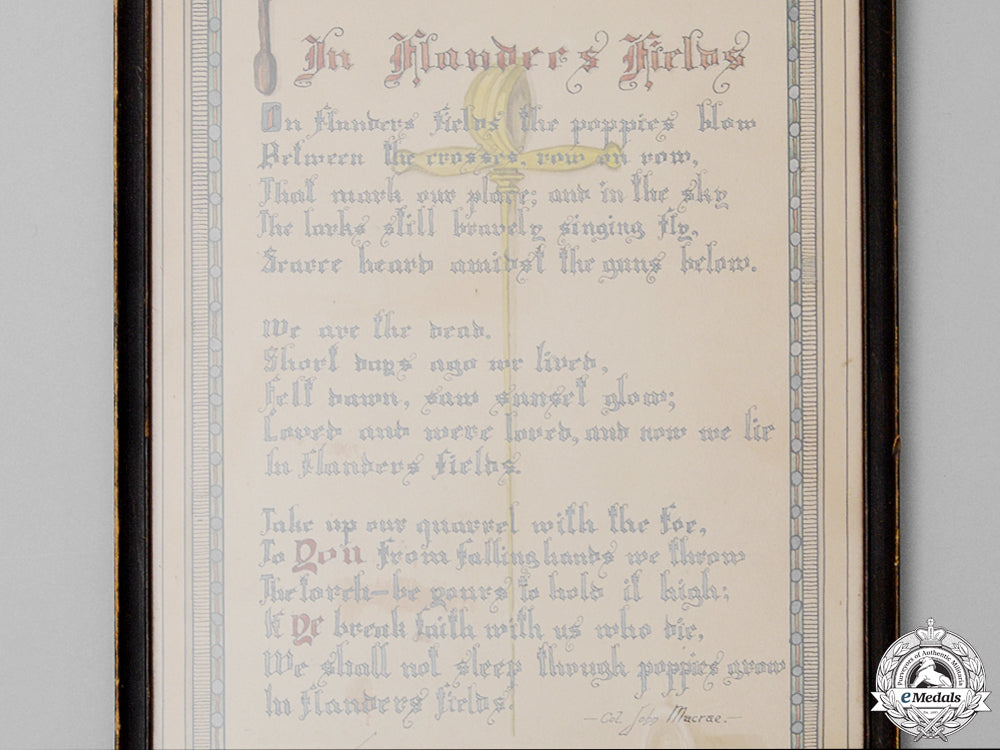 In Flanders Fields
In Flanders fields the poppies blow
Between the crosses, row on row,
That mark our place; and in the sky
The larks still bravely singing fly,
Scarce heard amidst the guns below.
We are the dead.
Short days ago we lived,
Felt dawn, saw sunset glow;
Loved and were loved, and now we lie
In Flanders fields.
Take up our quarrel with the foe,
To you from falling hands we throw
The torch—be yours to hold it high;
If ye break faith with us who die,
We shall not sleep though poppies grow
In Flanders fields.
—Col. John Macrae.—
Purveyors of Authentic Militaria
eMedals